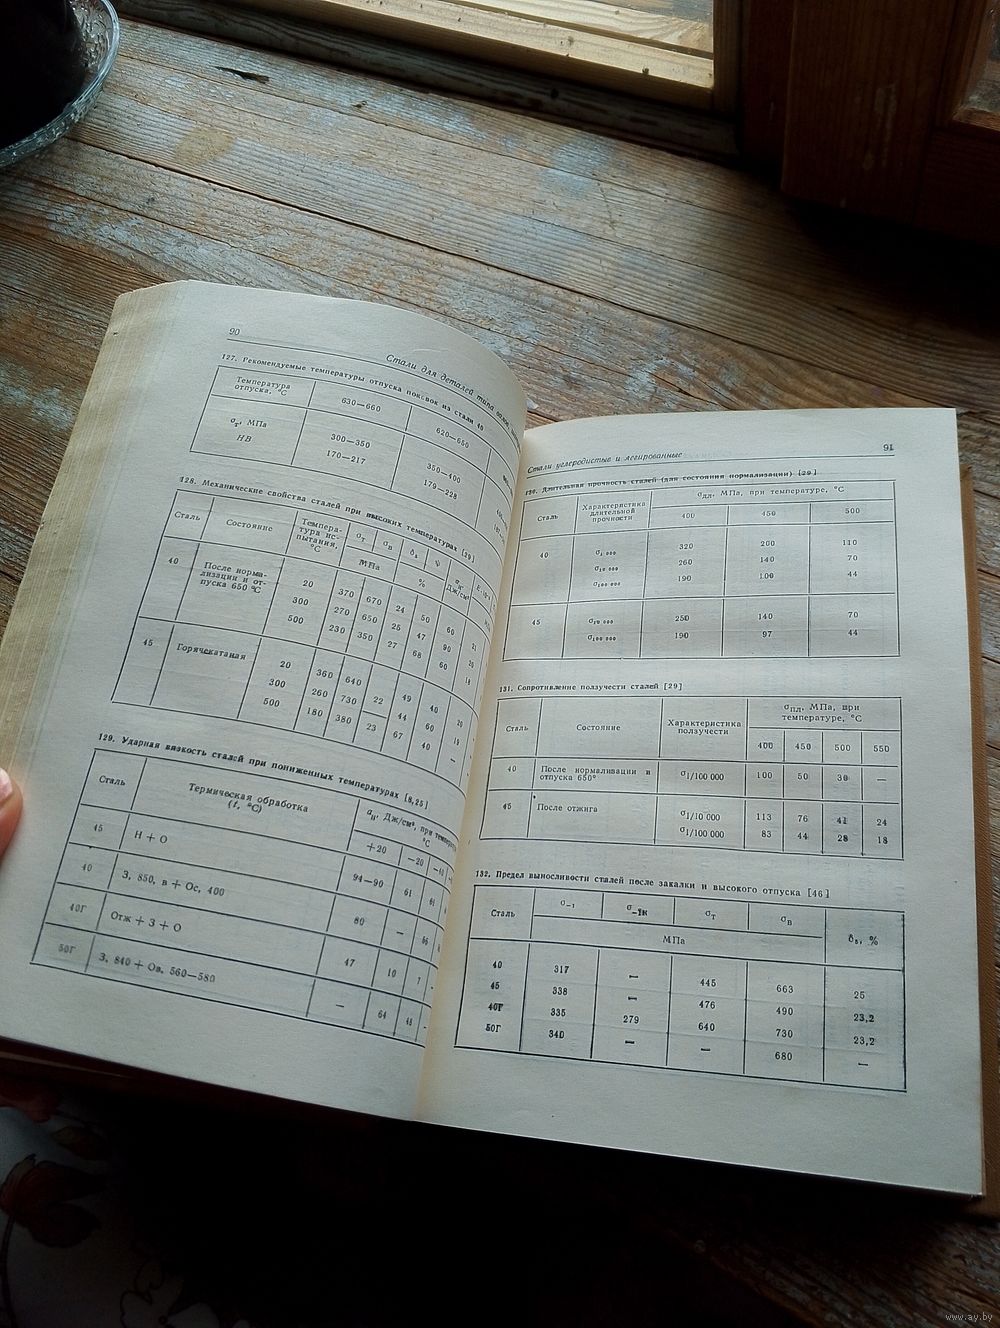 90
Стали для деталей типа валов
127. Рекомендуемые температуры отпуска поковок из стали 40
Температура отпуска, °С 630—660 620—650
σт, МПа 300—350 350—400
НВ 170—217 179—228
128. Механические свойства сталей при высоких температурах [29]
Сталь Состояние Температура испытания, °С σт σв δ5 ψ
МПа %
Дж/см²
40 После нормализации и отпуска 650 °С 20 370 670 24 50 60 21
300 270 650 25 47 90 20
500 230 350 27 68 60 18
45 Горячекатаная 20 360 640 22 49 40 20
300 260 730 44 60 19
500 180 380 23 67 40 —
129. Ударная вязкость сталей при пониженных температурах [8,25]
Сталь Термическая обработка (t, °С) aн, Дж/см², при °С
+20 −20 −40
45 Н + О 94—90 61
40 З, 850, в + Ос, 400 80 —
40Г Отж + З + О 47 10 7
50Г З, 840 + Ов, 560—580 — 64 48
Стали углеродистые и легированные
91
130. Длительная прочность сталей (для состояния нормализации) [29]
Сталь Характеристика длительной прочности σдл, МПа, при температуре, °С
400 450 500
40 σ1 000 320 200 110
σ10 000 260 140 70
σ100 000 190 100 44
45 σ10 000 250 140 70
σ100 000 190 97 44
131. Сопротивление ползучести сталей [29]
Сталь Состояние Характеристика ползучести σпл, МПа, при температуре, °С
400 450 500 550
40 После нормализации и отпуска 650° σ1/100 000 100 50 30 —
45 После отжига σ1/10 000 113 76 41 24
σ1/100 000 83 44 28 18
132. Предел выносливости сталей после закалки и высокого отпуска [46]
Сталь σ−1 σ−1к σт σв δ5, %
МПа
40 317 — 445 663 25
45 338 — 476 490 23,2
40Г 335 279 640 730 23,2
50Г 340 — — 680 —
www.ay.by